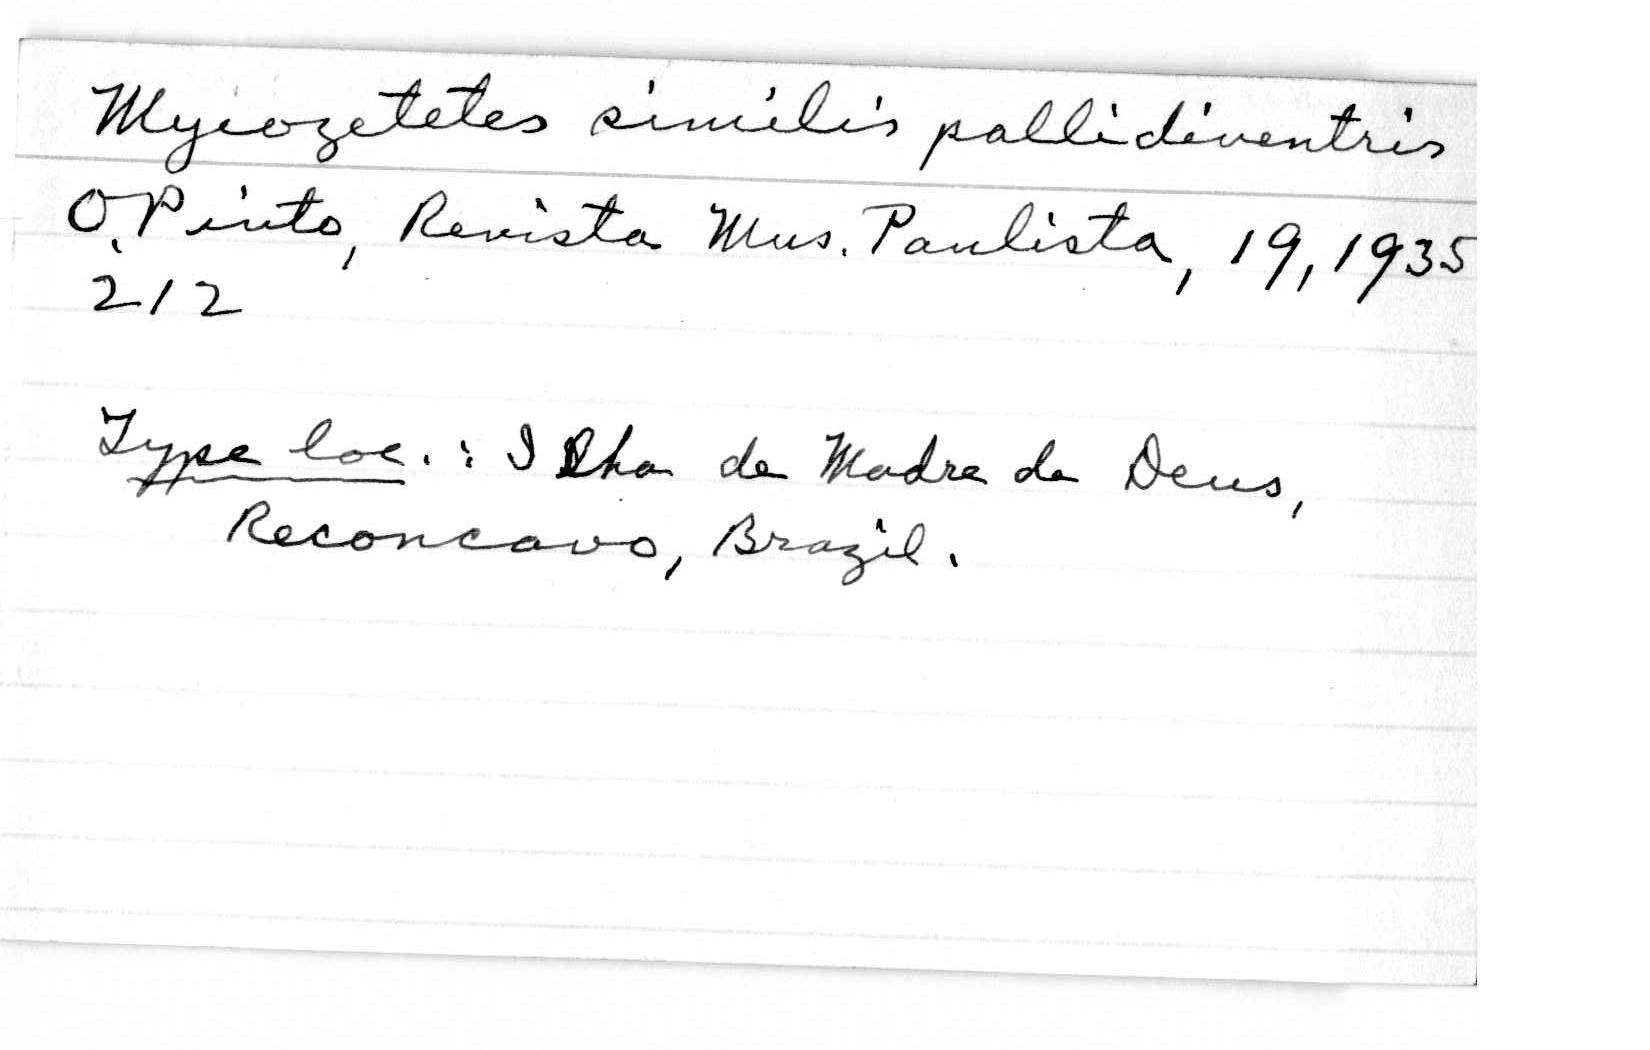 Myiozetetes similis pallidiventris
O. Pinto, Revista Mus. Paulista, 19, 1935
212
Type loc. : Ilha de Madre de Deus,
Reconcavo, Brazil.